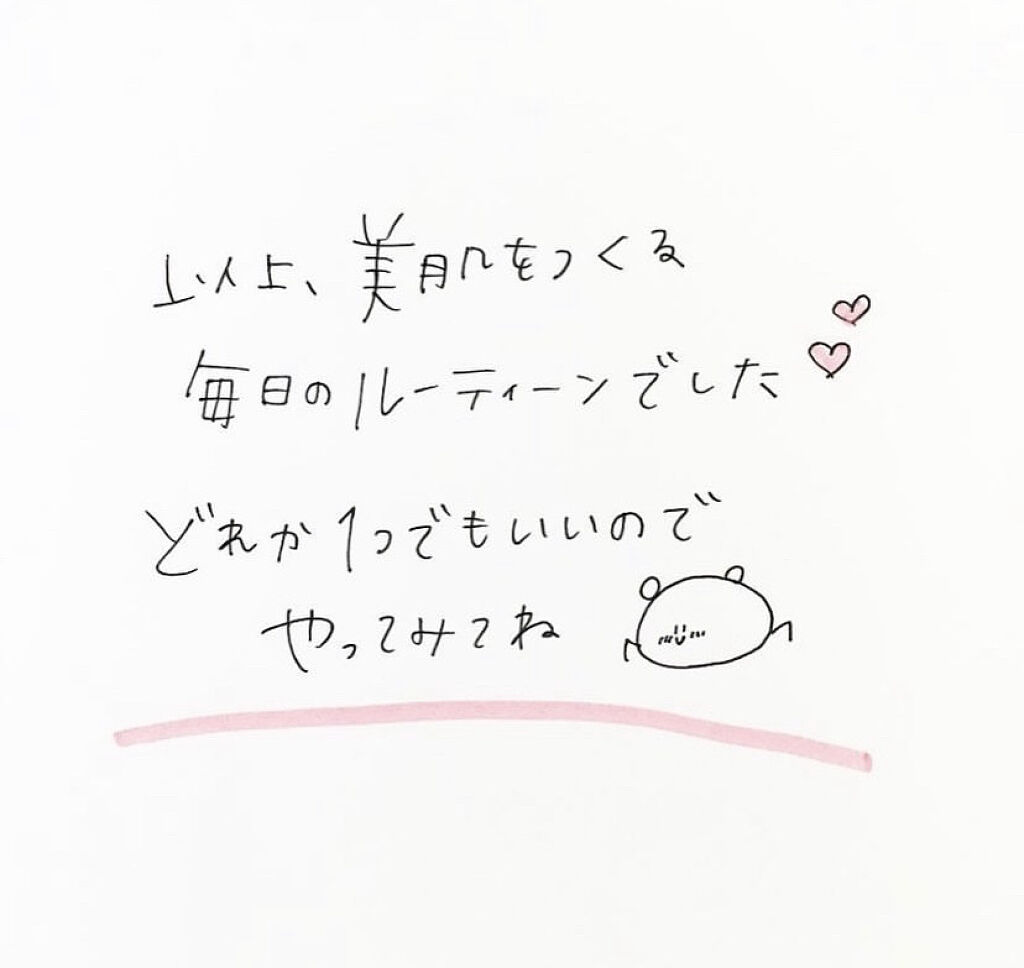 以上、美肌をつくる
毎日のルーティーンでした
どれか1つでもいいので
やってみてね